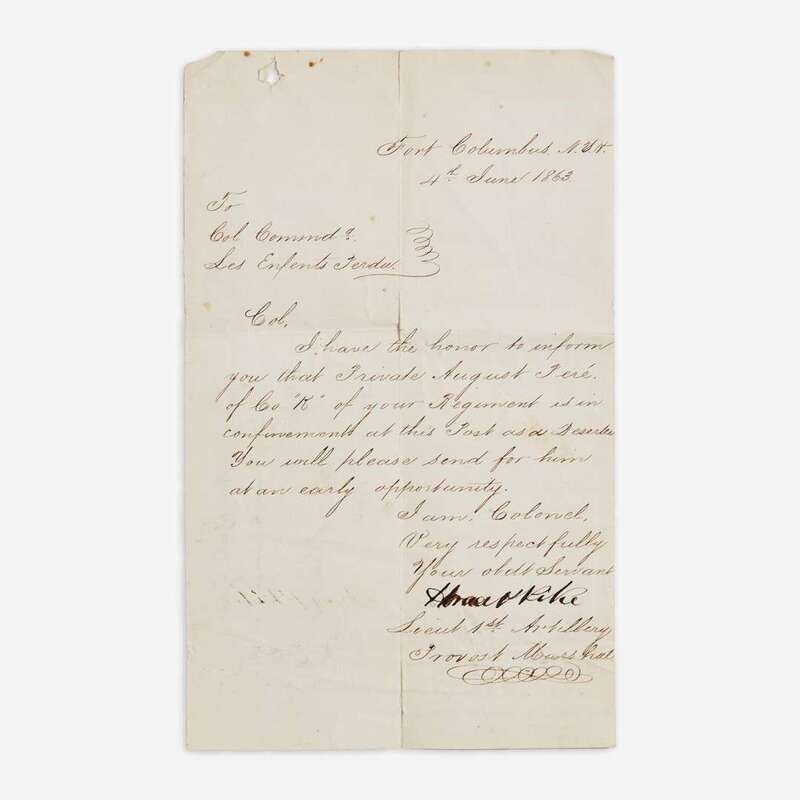 Fort Columbus. N.Y.H.
4th June 1863.
To
Col Commdr.
Les Enfents Perdu.
Col,
I have the honor to inform
you that Private August Peré.
of Co "K" of your Regiment is in
confinement at this Post as a Deserter
You will please send for him
at an early opportunity.
I am. Colonel,
Very respectfully
Your obdt Servant
Lieut 1st. Artillery
Provost Marshal